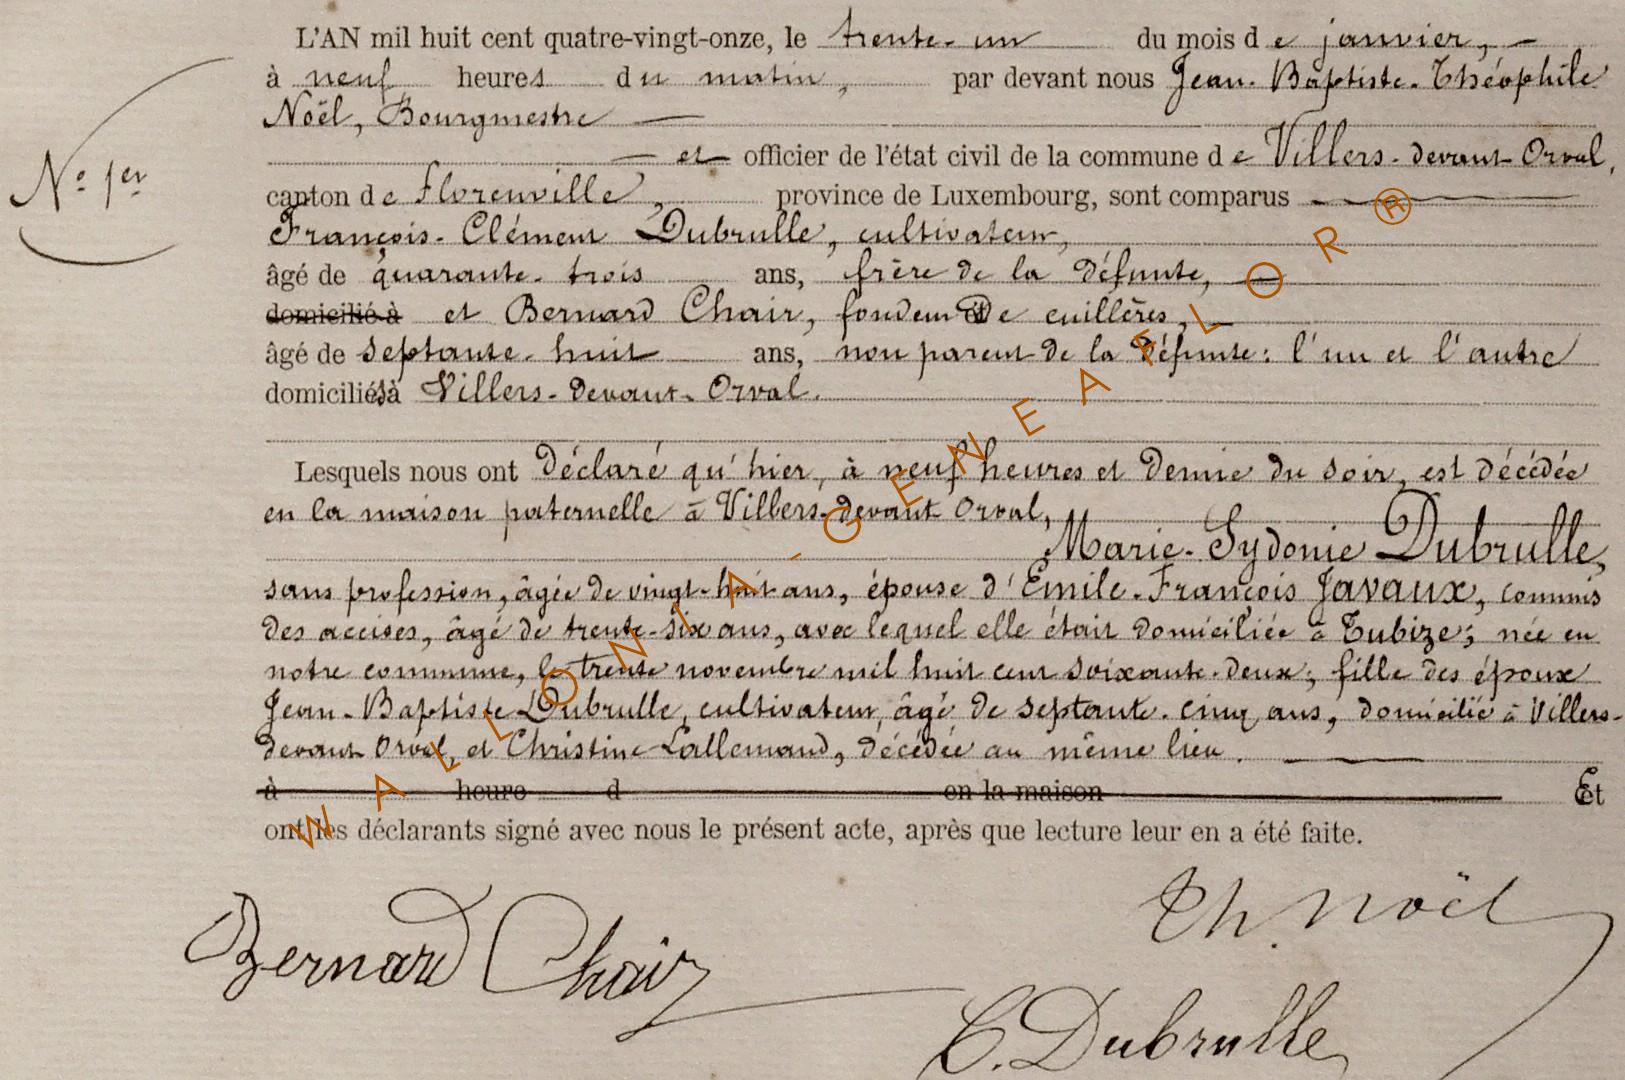 L'AN mil huit cent quatre-vingt-onze, le trente-un du mois de janvier,
à neuf heures du matin, par devant nous Jean-Baptiste-Théophile
Noël, Bourgmestre
et officier de l'état civil de la commune de Villers-devant-Orval,
N° 1er
canton de Florenville, province de Luxembourg, sont comparus
François-Clément Dubrulle, cultivateur,
âgé de quarante-trois ans, frère de la défunte,
domicilié à et Bernard Chair, fondeur de cuillères,
âgé de septante-huit ans, non parent de la défunte: l'un et l'autre
domiciliés à Villers-devant-Orval.
Lesquels nous ont déclaré qu'hier, à neuf heures et demie du soir, est décédée
en la maison paternelle à Villers-devant Orval,
Marie-Sydonie Dubrulle,
sans profession, âgée de vingt-huit ans, épouse d'Emile-François Javaux, commis
des accises, âgé de trente-six ans, avec lequel elle était domiciliée à Tubize; née en
notre commune, le trente novembre mil huit cent soixante-deux; fille des époux
Jean-Baptiste Dubrulle, cultivateur, âgé de septante-cinq ans, domicilié à Villers-
devant-Orval, et Christine Lallemand, décédée au même lieu.
à heure d en la maison Et
ont les déclarants signé avec nous le présent acte, après que lecture leur en a été faite.
Th. Noël
Bernard Chair
C. Dubrulle
WALLONIA-GENEAFLOR®